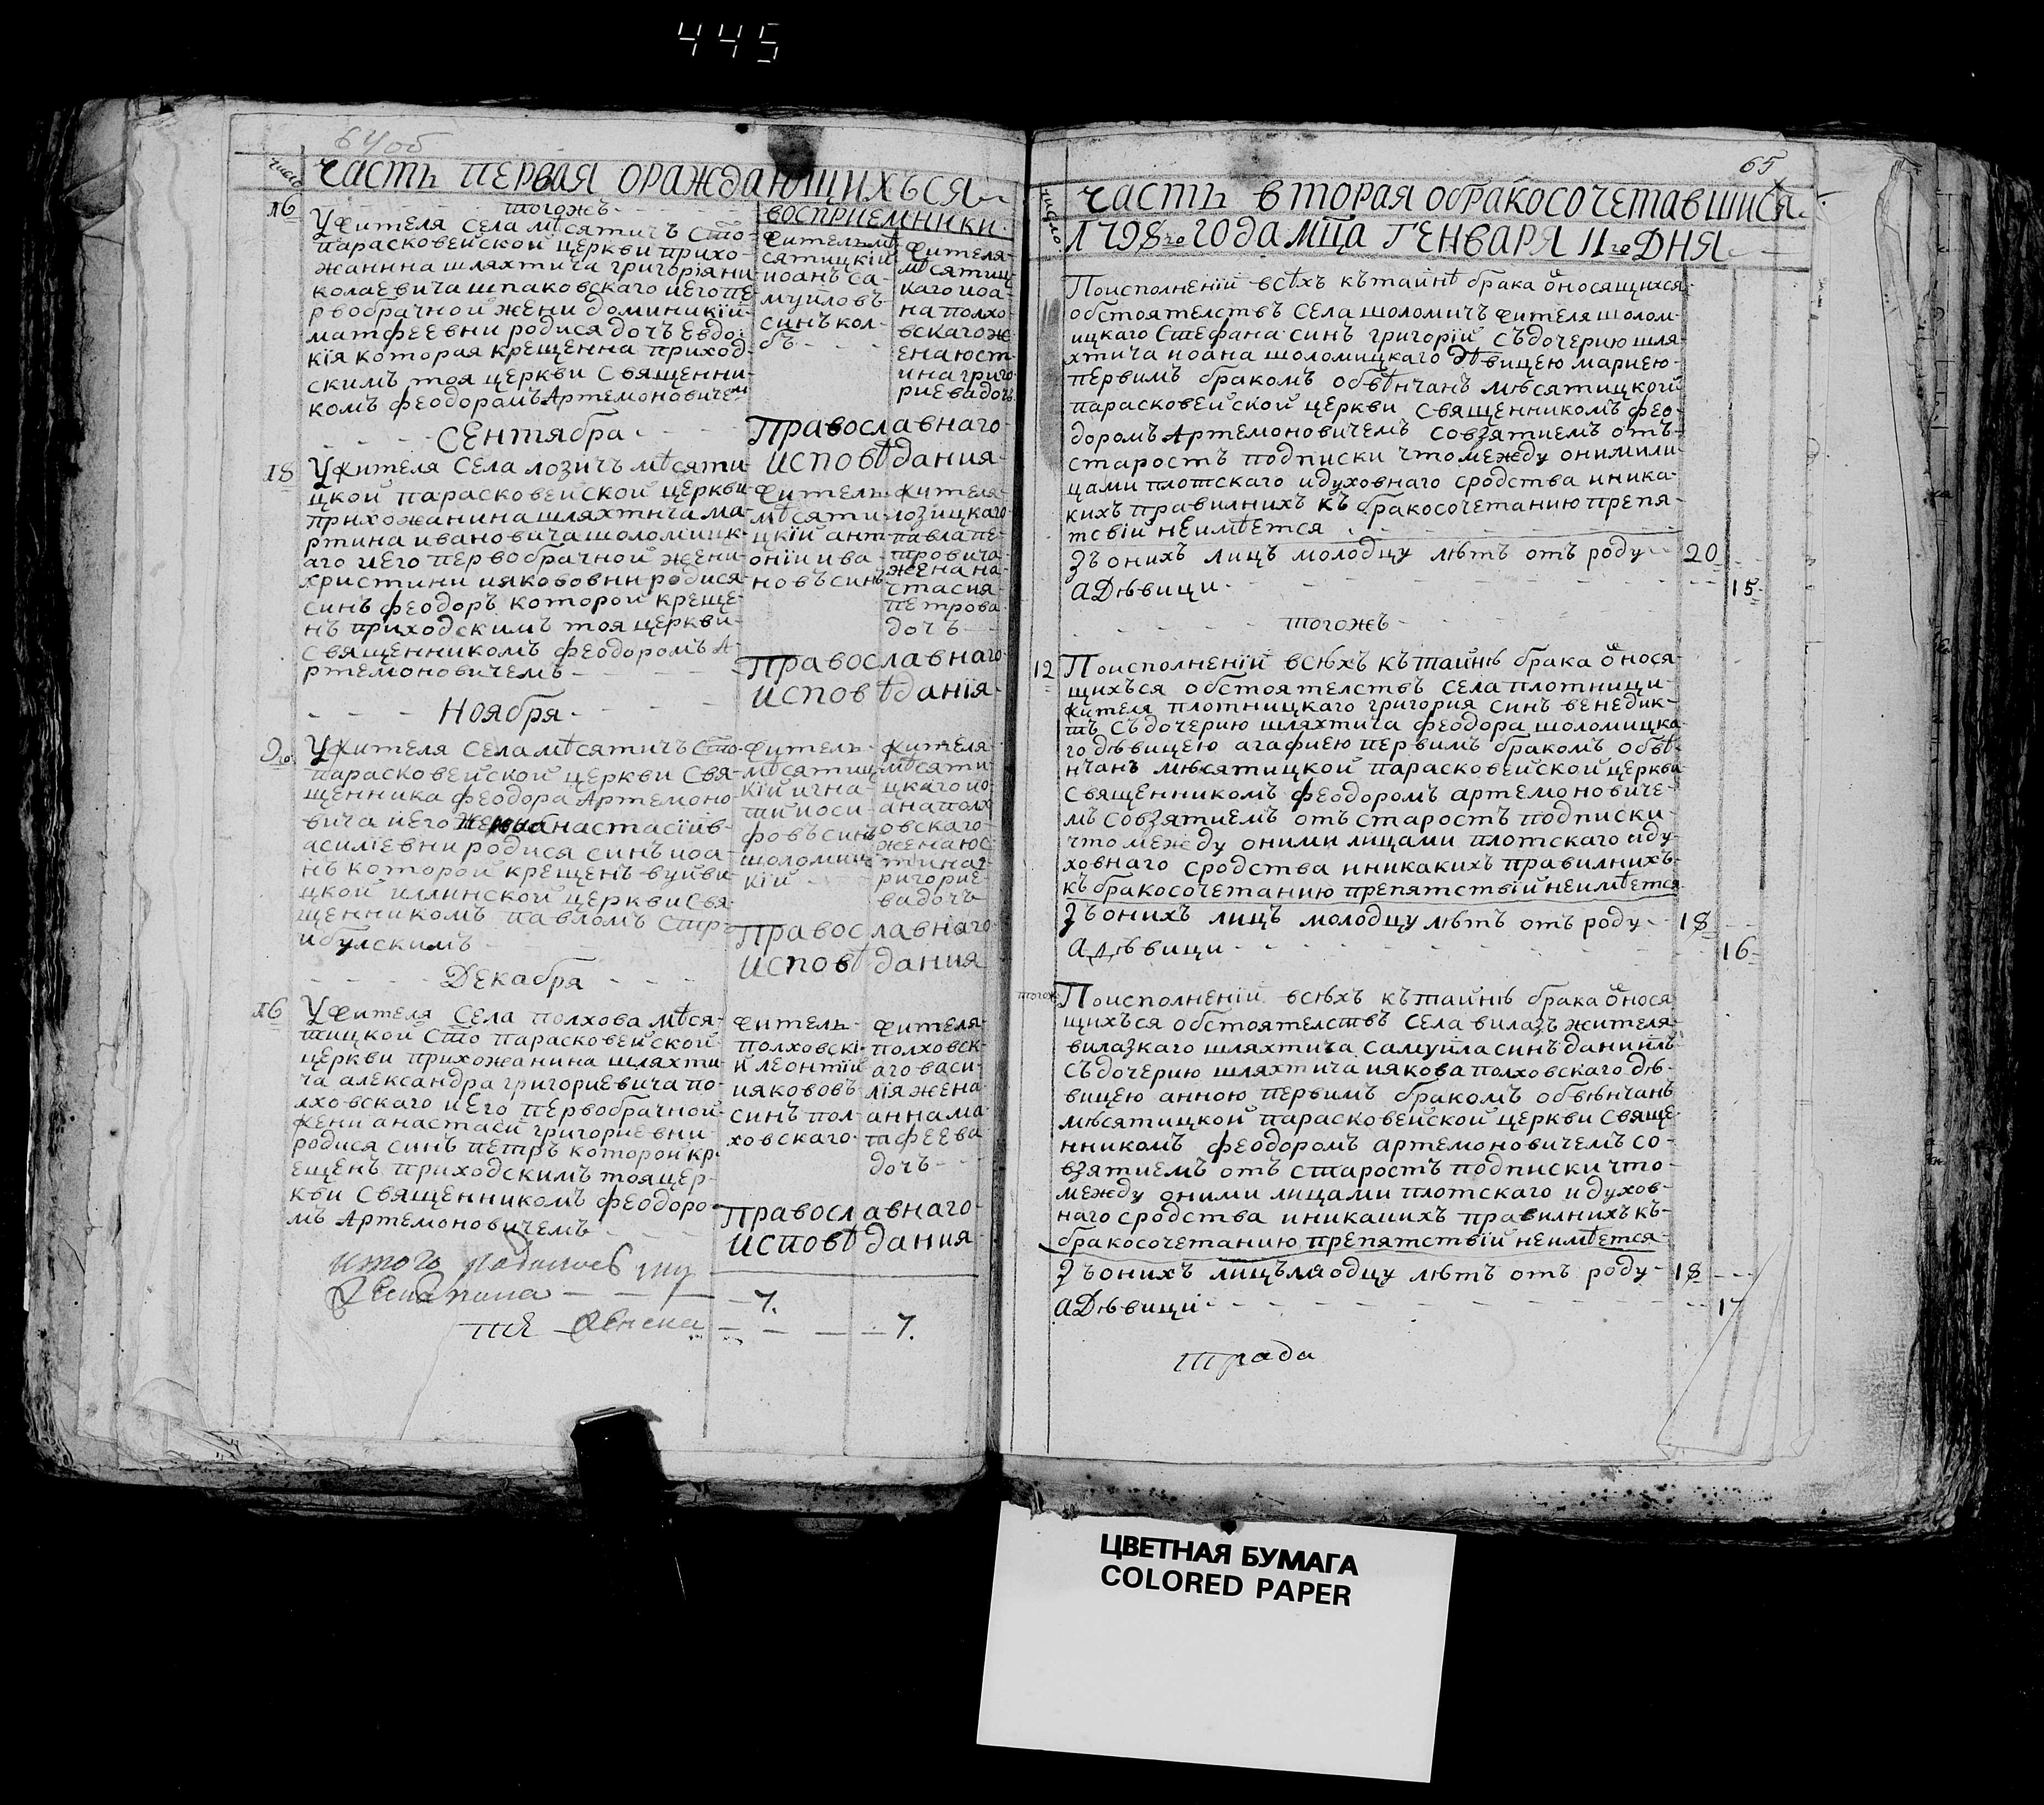 445
64 об
число
ЧАСТЬ ПЕРВАЯ ОРАЖДАЮЩИХЪСЯ
тогожъ
ВОСПРИЕМНИКИ
16
У жителя села мѣсятичъ Сто
парасковейской церкви прихо-
жанина шляхтича григорїя ни
колаевича шпаковскаго и его пе
рвобрачной жени доминикїи
матфеевни родися дочъ Евдо-
кїя которая крещенна приход-
скимъ тоя церкви Священни-
комъ феодоромъ Артемоновичем
житель мѣ
сятицкїи
иоанъ са-
муиловъ
синъ кол-
бъ
жителя
мѣсятиц
каго иоа-
на полхо-
вскаго ж
ена юст
ина григо
риева доч
Православнаго
исповѣдания
СЕнтября
18
У жителя Села лозичъ мѣсяти
цкой парасковейской церкви
прихожанина шляхтича ма-
ртина ивановича шоломицк-
аго и его первобрачной жени
христини ияковovни родися
синъ феодоръ которой креще-
нъ приходскимъ тоя церкви
Священникомъ феодоромъ А-
ртемоновичемъ
житель
мѣсяти
цкїй ант
онїи ива
новъ синъ
жителя
лозицкаго
павла пе-
тровича
жена на-
стасия
петрова
дочъ
Православнаго
исповѣданїя
Ноября
9го
У жителя Села мѣсятичъ Сто
парасковейской церкви Свя-
щенника феодора Артемоно
вича и его жени анастасїи в-
асилїевни родися синъ иоа-
нъ которой крещенъ вуйви
цкой иллинской церкви Свя-
щенникомъ павломъ Стр
ибулскимъ
житель
мѣсятиц
кїй игна-
тїи иоси
фовъ синъ
шоломиц
кїй
жителя
мѣсяти
цкаго ио-
ана полх
овскаго
жена юс
тина г-
ригорие
ва дочъ
Православнаго
исповѣдания
Декабря
16
У жителя Села полхова мѣся-
тицкой Сто парасковейской
церкви прихожанина шляхти
ча александра григориевича по-
лховскаго и его первобрачной
жени анастаси григориевни
родися синъ петръ которой кр-
ещенъ приходскимъ тоя цер-
кви священникомъ феодоро-
мъ Артемоновичемъ
житель
полховскі-
й леонтїи
ияковов
синъ пол-
ховскаго
жителя
полховск-
аго васи-
лїя жена
анна ма
тфеева
дочъ
Православнаго
исповѣдания
7.
7.
65
число
ЧАСТЬ ВТОРАЯ ОБРАКОСОЧЕТАВШИСЯ
1798го ГОДА МЦА ГЕНВАРЯ 11го ДНЯ
По исполненїй всѣхъ къ тайнѣ брака ѿносящихся
обстоятелствъ Села шоломичъ жителя шолом-
ицкаго Стефана синъ григорїй съ дочерию шля-
хтича иоана шоломицкаго дѣвицею мариею
первимъ бракомъ обвѣнчанъ мѣсятицкой
парасковейской церкви священникомъ фео-
доромъ Артемоновичемъ совзятием отъ
старостъ подписки что между оними ли
цами плотскаго и духовнаго сродства и ника-
кихъ правилнихъ къ бракосочетанию препя-
тсвїй неимѣется
Зъ онихъ лицъ молодцу лѣтъ отъ роду 20
а дѣвици 15
тогожъ
12
По исполненїй всѣхъ къ тайнѣ брака ѿнося-
щихъся обстоятелствъ Села плотници
жителя плотницкаго григория синъ венедик-
тъ съ дочерию шляхтича феодора шоломицка-
го дѣвицею агафиею первимъ бракомъ обвѣ-
нчанъ мѣсятицкой парасковейской церкви
Священникомъ феодоромъ артемоновиче-
мъ совзятием отъ старостъ подписки
что между оними лицами плотскаго и ду-
ховнаго сродства и никакихъ правилнихъ
къ бракосочетанию препятствїй неимѣется
Зъ онихъ лицъ молодцу лѣтъ отъ роду 18
а дѣвици 16
тогож
По исполненїй всѣхъ къ тайнѣ брака ѿнося
щихъся обстоятелствъ Села вилазъ жителя
вилазкаго шляхтича самуила синъ даниилъ
съ дочерию шляхтича иякова полховскаго дѣ-
вицею анною первимъ бракомъ обвѣнчанъ
мѣсятицкой парасковейской церкви свяще-
нникомъ феодоромъ артемоновичемъ со-
взятием отъ старостъ подписки что
между оними лицами плотскаго и духов-
наго сродства и никакихъ правилнихъ къ
бракосочетанию препятствїй неимѣется
Зъ онихъ лицъ млодцу лѣтъ отъ роду 18
а дѣвици 17
ЦВЕТНАЯ БУМАГА
COLORED PAPER